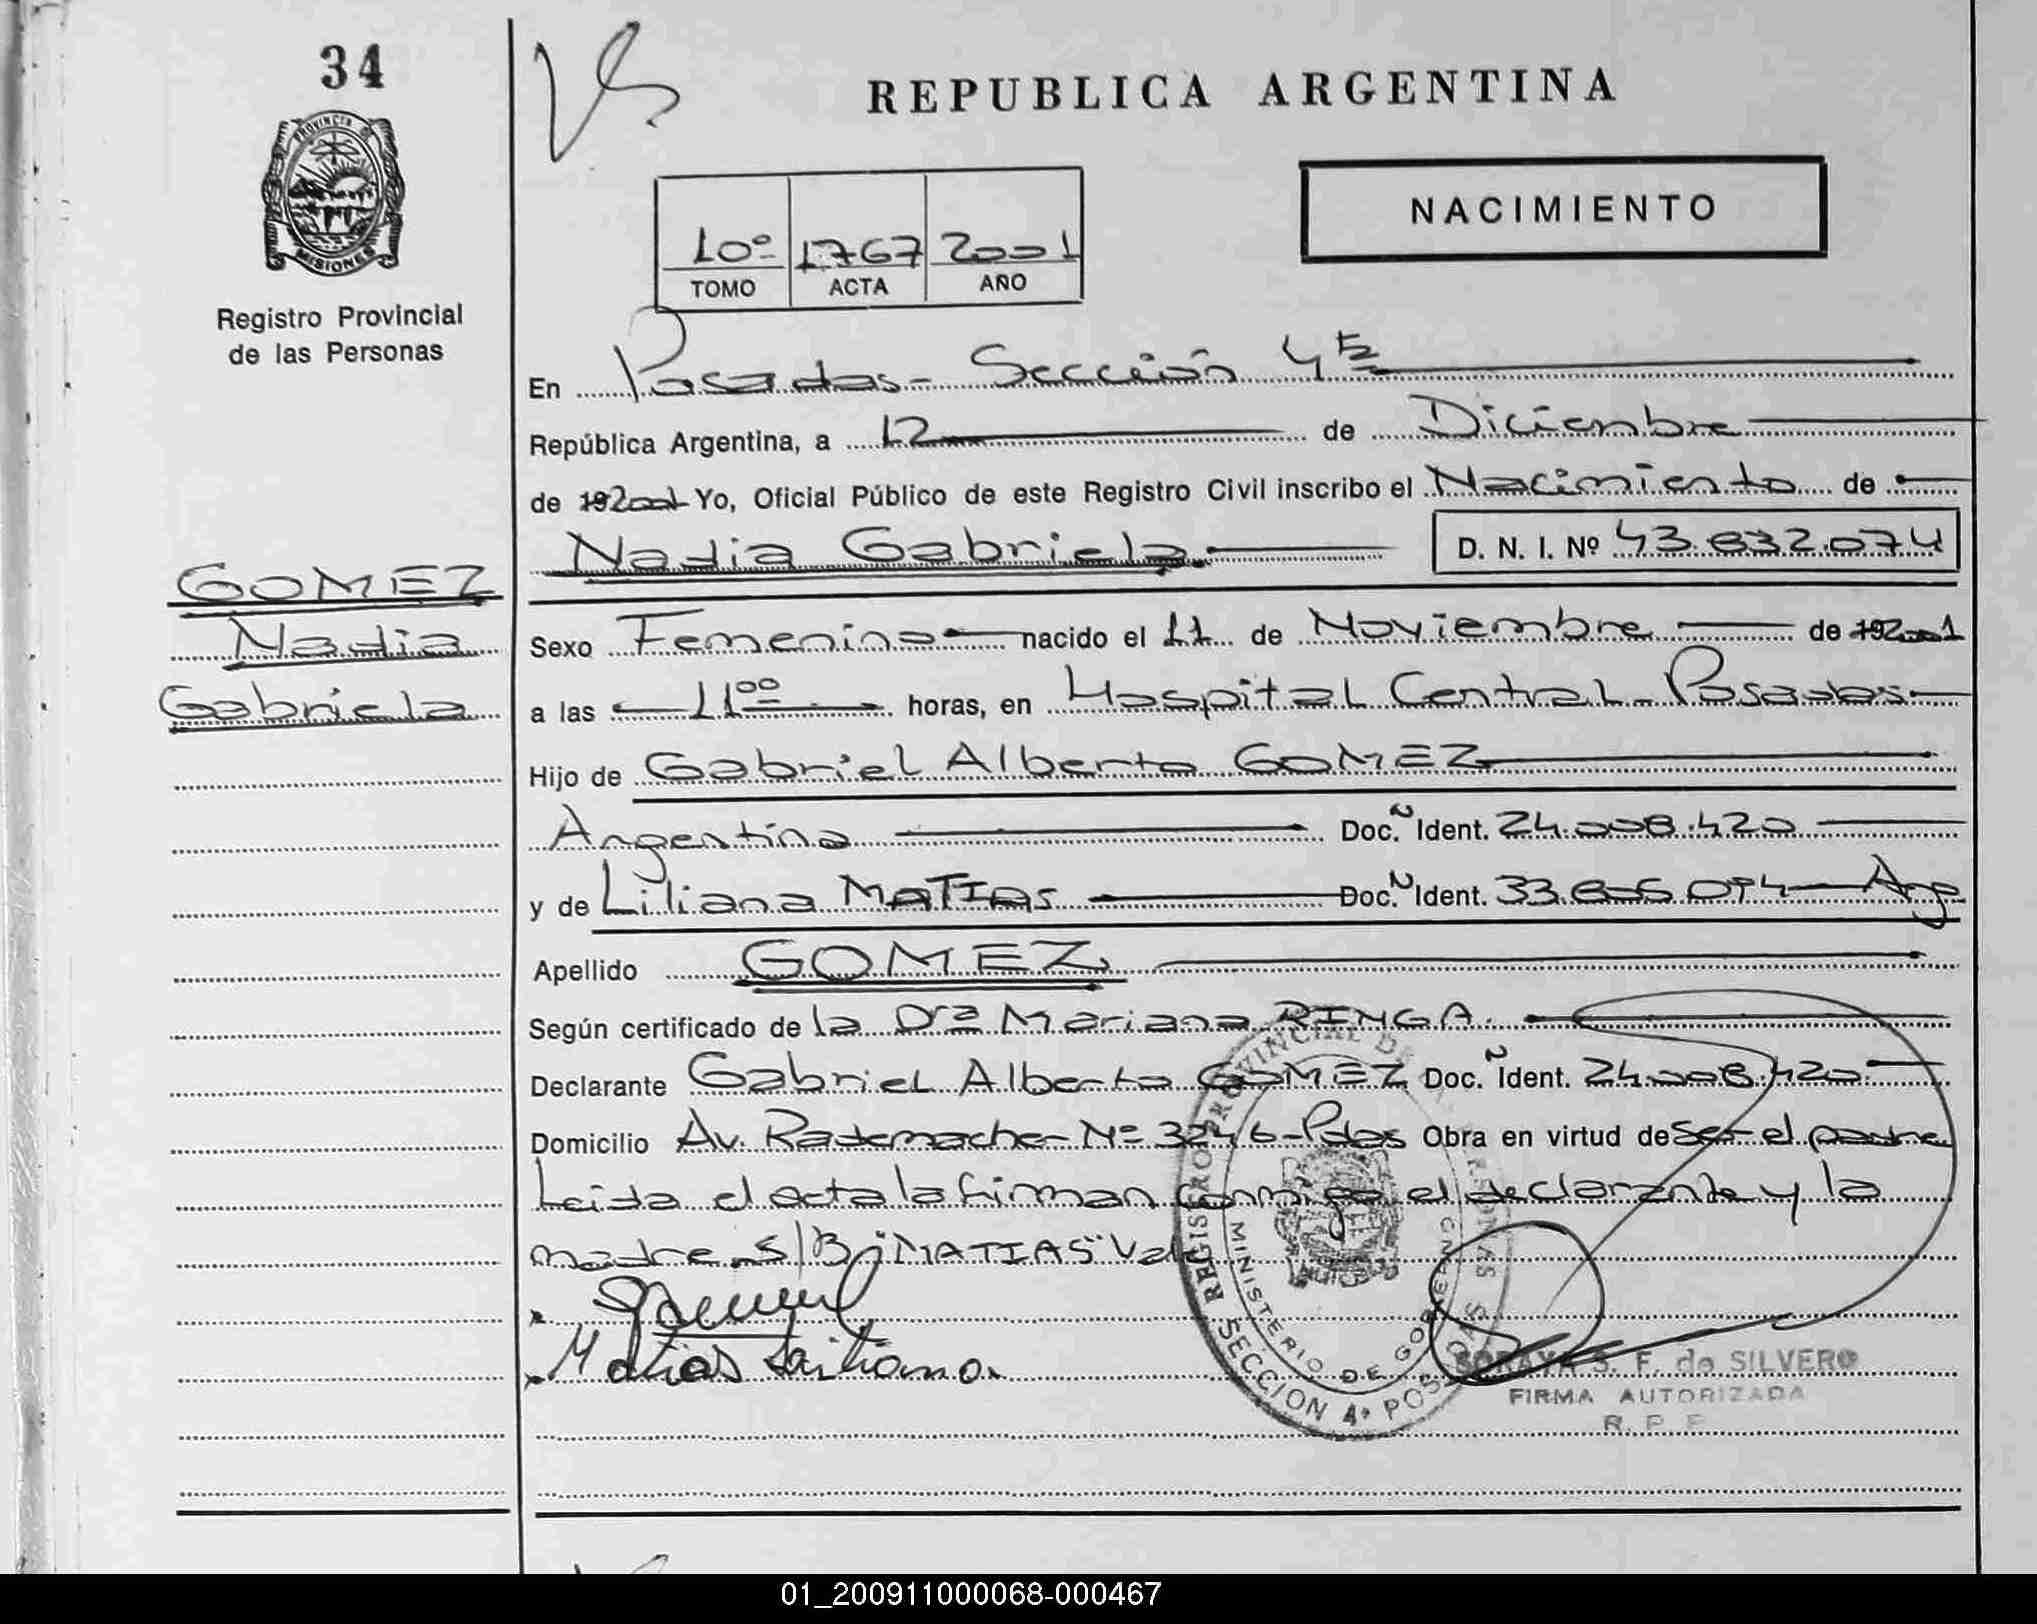 34
REPUBLICA ARGENTINA
PROVINCIA DE
MISIONES
Registro Provincial
de las Personas
NACIMIENTO
10º 1767 2001
TOMO ACTA AÑO
En Posadas - Sección 4ta
República Argentina, a 12 de Diciembre
de 192001 Yo, Oficial Público de este Registro Civil inscribo el Nacimiento de
Nadia Gabriela D. N. I. Nº 43.832.074
GOMEZ
Nadia
Gabriela
Sexo Femenino nacido el 11 de Noviembre de 192001
a las 11 00 horas, en Hospital Central - Posadas
Hijo de Gabriel Alberto GOMEZ
Argentina Doc. Ident. 24.008.420
y de Liliana MATIAS Doc. Ident. Arg
Apellido GOMEZ
Según certificado de la Dra Mariana RINGA.
Declarante Gabriel Alberto GOMEZ Doc. Ident. 24.008.420
Domicilio Av. Rademacher Nº 3246 - Pdas Obra en virtud de ser el padre
Leida el acta la firman conmigo el declarante y la
madre S/B "MATIAS" Vale
Matias
REGISTRO PROVINCIAL DE LAS PERSONAS
MINISTERIO DE GOBIERNO
SECCION 4ª POSADAS
SORAYA S. F. de SILVERO
FIRMA AUTORIZADA
R. P. P.
01_200911000068-000467